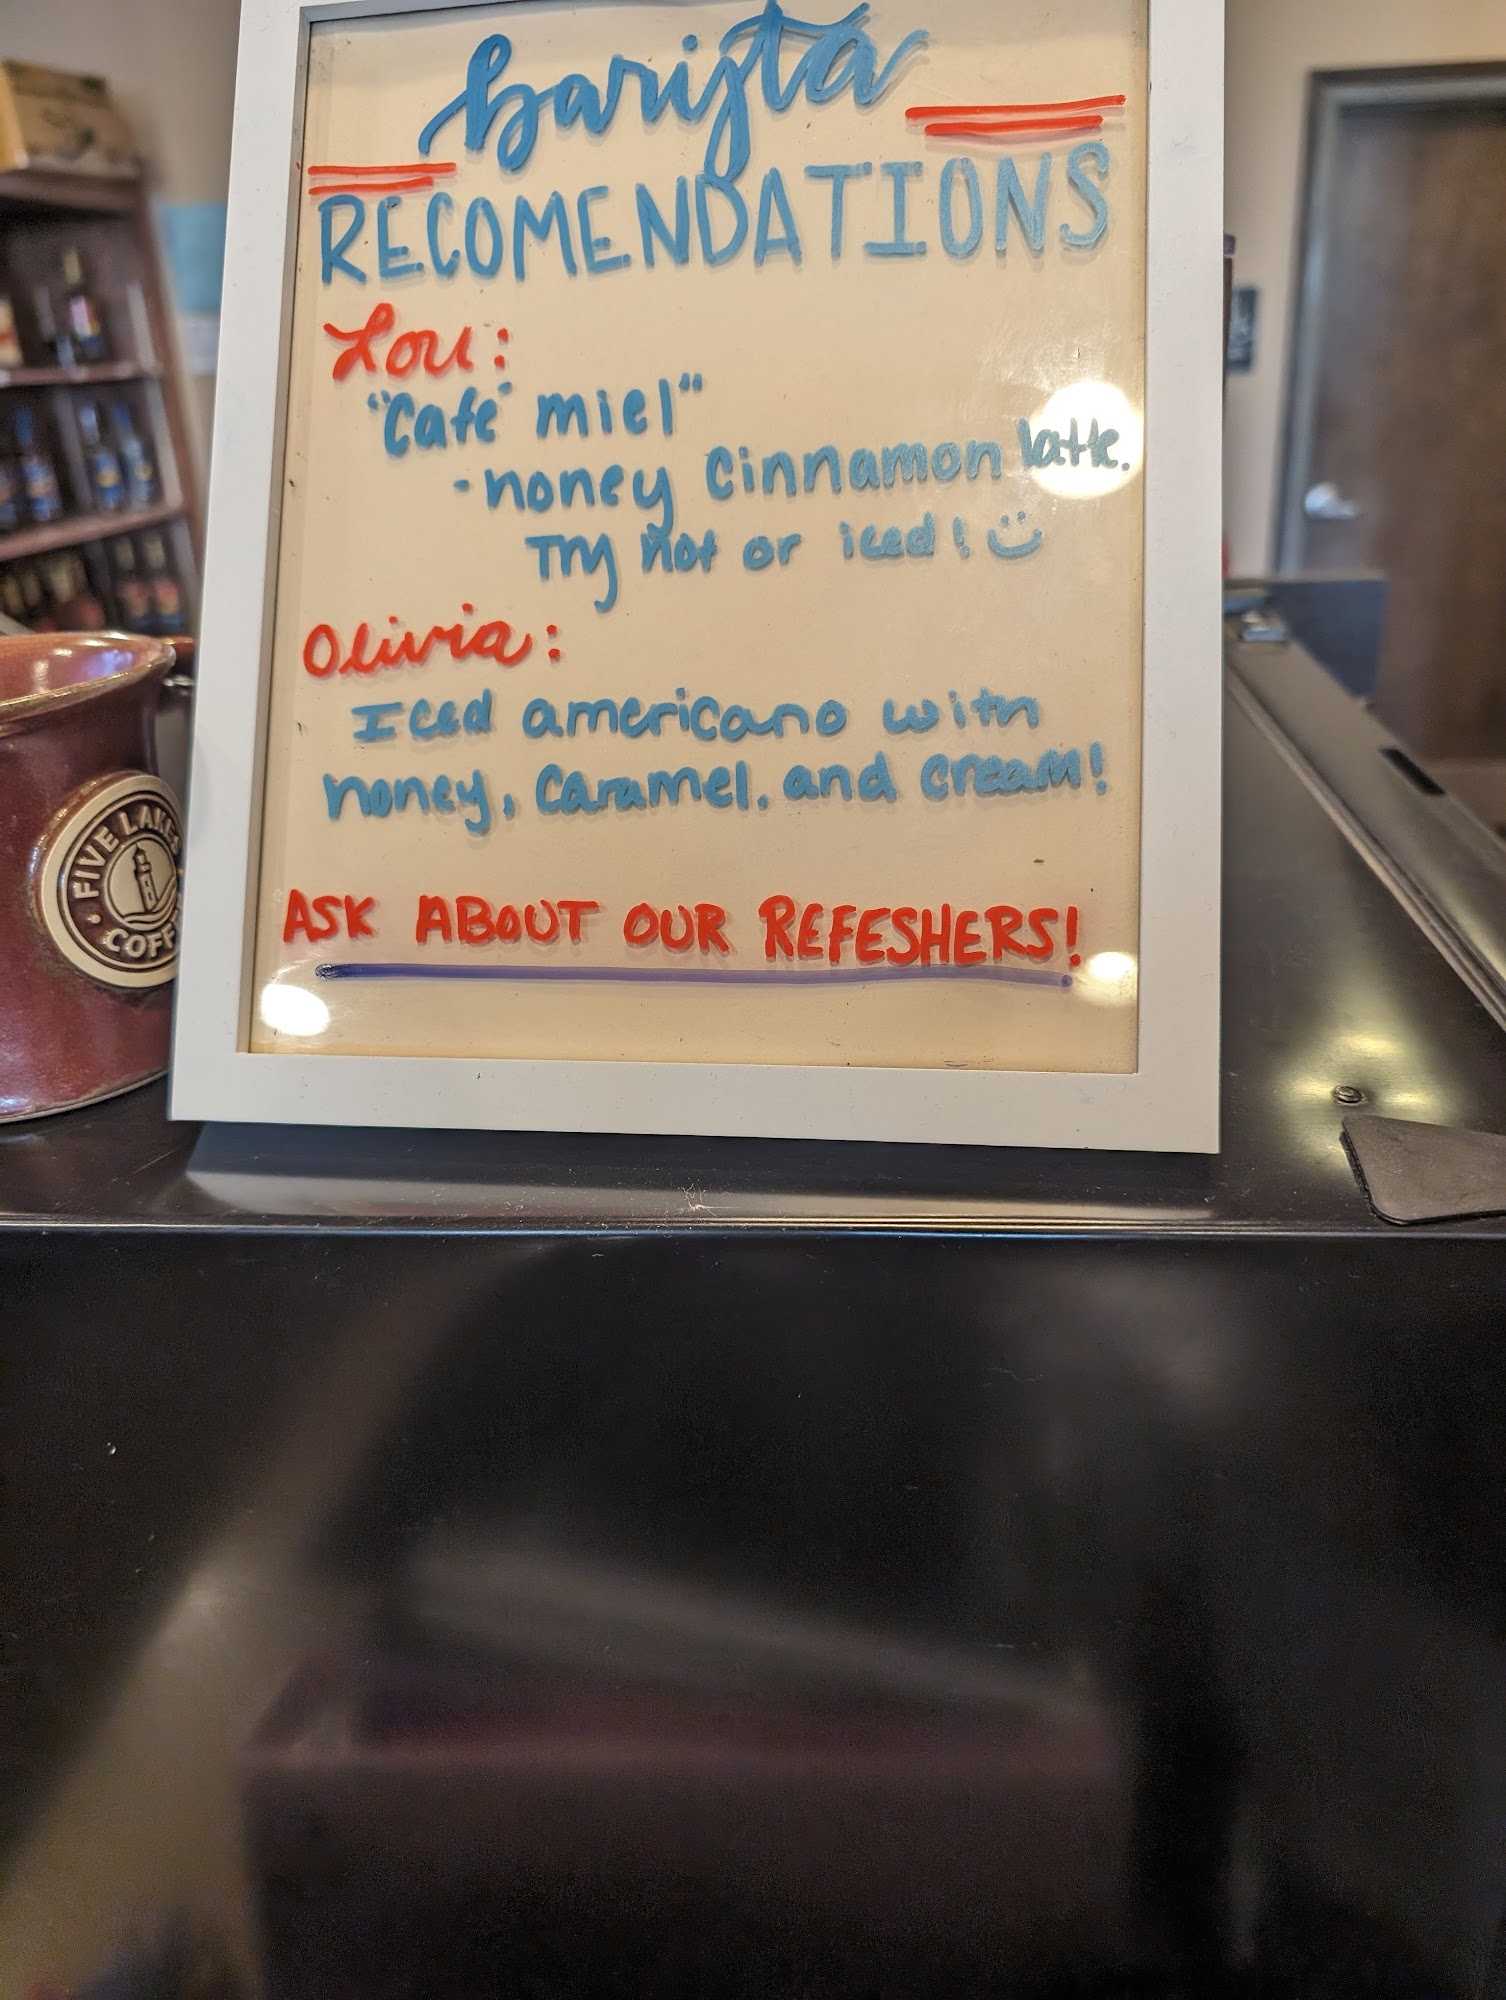 barista
RECOMENDATIONS
Lou:
"Café miel"
-honey cinnamon latte.
Try hot or iced!
Olivia:
Iced americano with
honey, caramel, and cream!
ASK ABOUT OUR REFESHERS!
FIVE LAKES
COFF